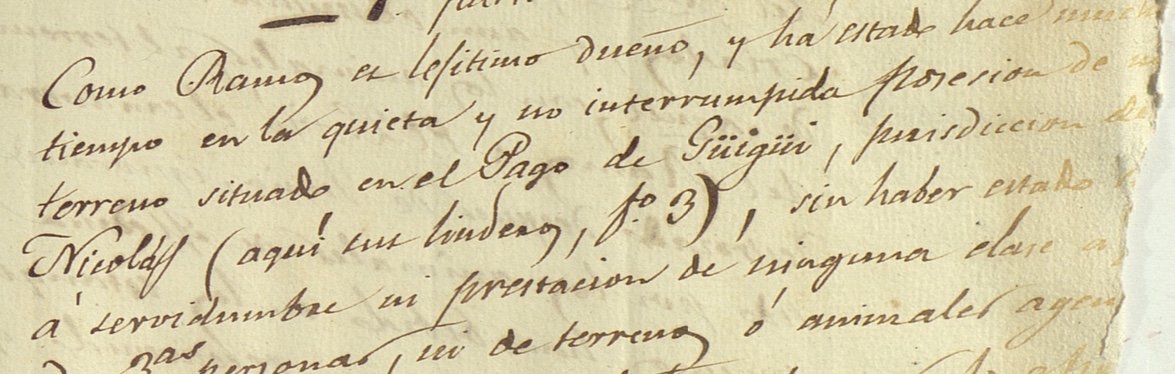 Como Ramos es lejitimo dueño, y há estado hace much
tiempo en la quieta y no interrumpida posesion de
terreno situado en el Pago de Güigüi, jurisdiccion de
Nicolás (aquí sus linderos, f.º 3), sin haber estado
á servidumbre ni prestacion de ninguna clase a
3as personas, ni de terrenos ó animales agen